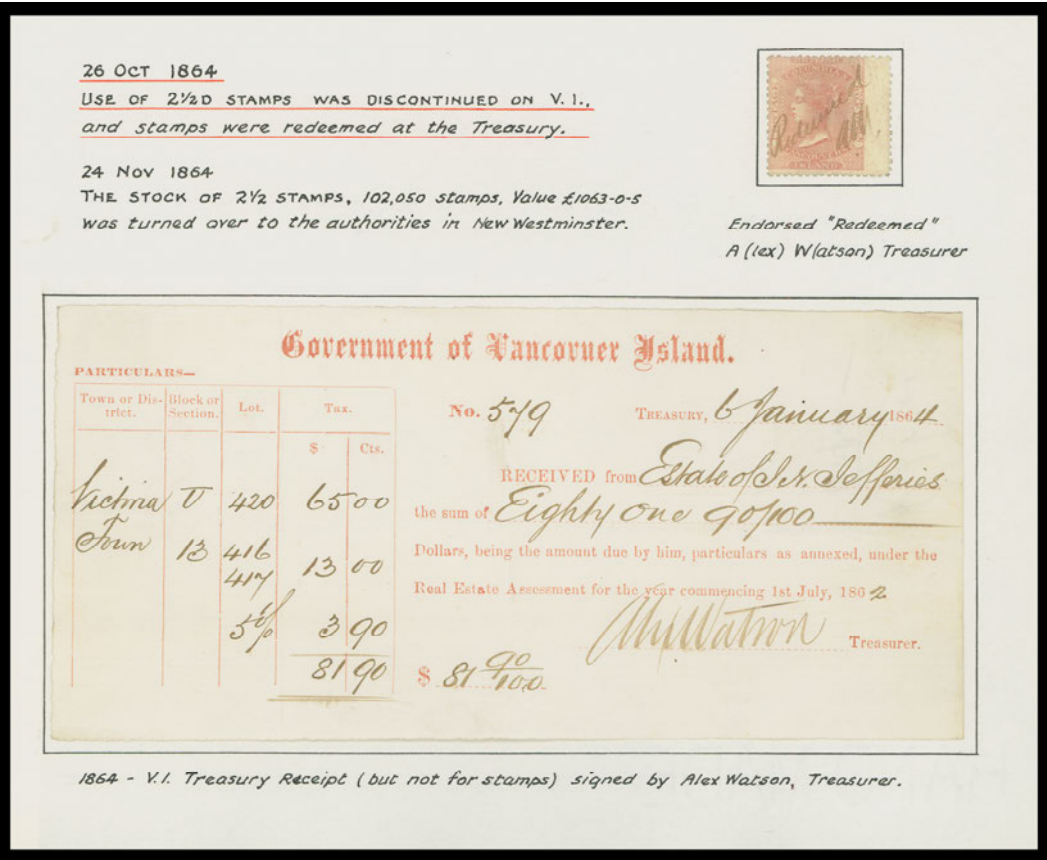 26 OCT 1864
USE OF 2½D STAMPS WAS DISCONTINUED ON V.I.,
and stamps were redeemed at the Treasury.
24 NOV 1864
THE STOCK OF 2½ STAMPS, 102,050 stamps, Value £1063-0-5
was turned over to the authorities in New Westminster.
Redeemed
AW.
Endorsed "Redeemed"
A(lex) W(atson) Treasurer
Government of Vancouver Island.
PARTICULARS—
Town or Dis- Block or Lot. Tax.
trict. Section.
$ Cts.
No. 579 TREASURY, 6 January 1864
RECEIVED from Estate of J. N. Jefferies
Victoria U 420 65 00
the sum of Eighty One 90/100
Town 13 416
417 13 00
Dollars, being the amount due by him, particulars as annexed, under the
Real Estate Assessment for the year commencing 1st July, 1862
5% 3 90
Alex Watson Treasurer.
81 90
$ 81 90/100
1864 - V.I. Treasury Receipt (but not for stamps) signed by Alex Watson, Treasurer.